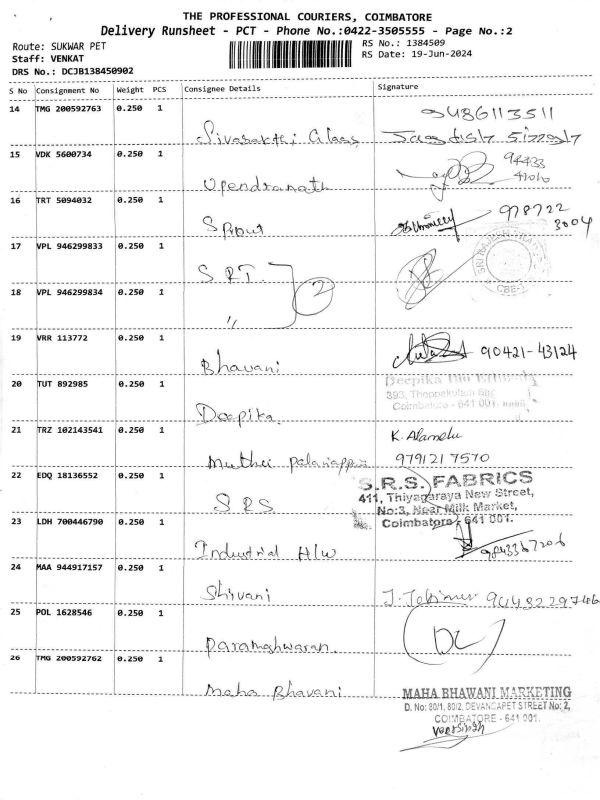 THE PROFESSIONAL COURIERS, COIMBATORE
Delivery Runsheet - PCT - Phone No.:0422-3505555 - Page No.:2
Route: SUKWAR PET
RS No.: 1384509
Staff: VENKAT
RS Date: 19-Jun-2024
DRS No.: DCJB138450902
S No Consignment No Weight PCS Consignee Details Signature
14 TMG 200592763 0.250 1
9486113511
Sivasakthi Glass Jagdish Singh
15 VDK 5600734 0.250 1
94433
41010
Upendranath
16 TRT 5094032 0.250 1
978722
3004
Sprout
17 VPL 946299833 0.250 1
S.R.T. 2
CBE-1
18 VPL 946299834 0.250 1
"
19 VRR 113772 0.250 1
90421-43124
Bhavani
20 TUT 892985 0.250 1
Deepika
393, Thoppekulam
Coimbatore - 641 001.
Deepika.
21 TRZ 102143541 0.250 1
K. Alamelu
Muthu Palaniappa 9791217570
22 EDQ 18136552 0.250 1
S.R.S. FABRICS
411, Thiyagaraya New Street,
No:3, Near Milk Market,
Coimbatore - 641 001.
SRS
23 LDH 700446790 0.250 1
9843367206
Industrial H/W
24 MAA 944917157 0.250 1
Shivani
25 POL 1628546 0.250 1
DC
Parameshwaran.
26 TMG 200592762 0.250 1
Maha Bhavani
MAHA BHAWANI MARKETING
D. No: 80/1, 80/2, DEVANGAPET STREET No: 2,
COIMBATORE - 641 001.